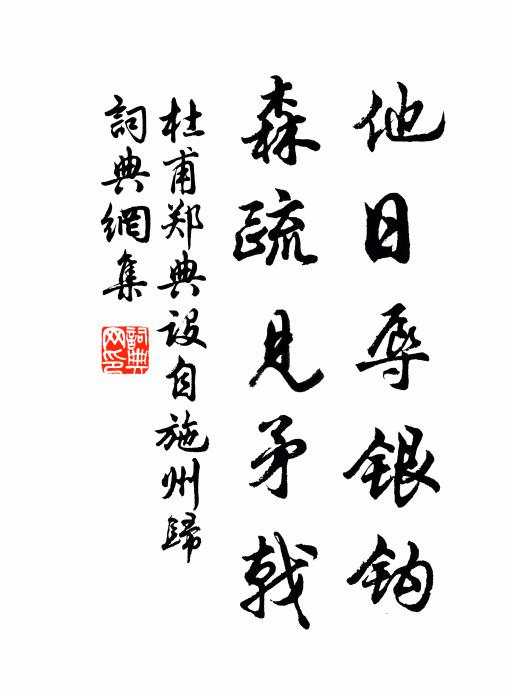 他日辱银钩
森疏见矛戟
杜甫郑典设自施州歸
詞典網集
詞典网印